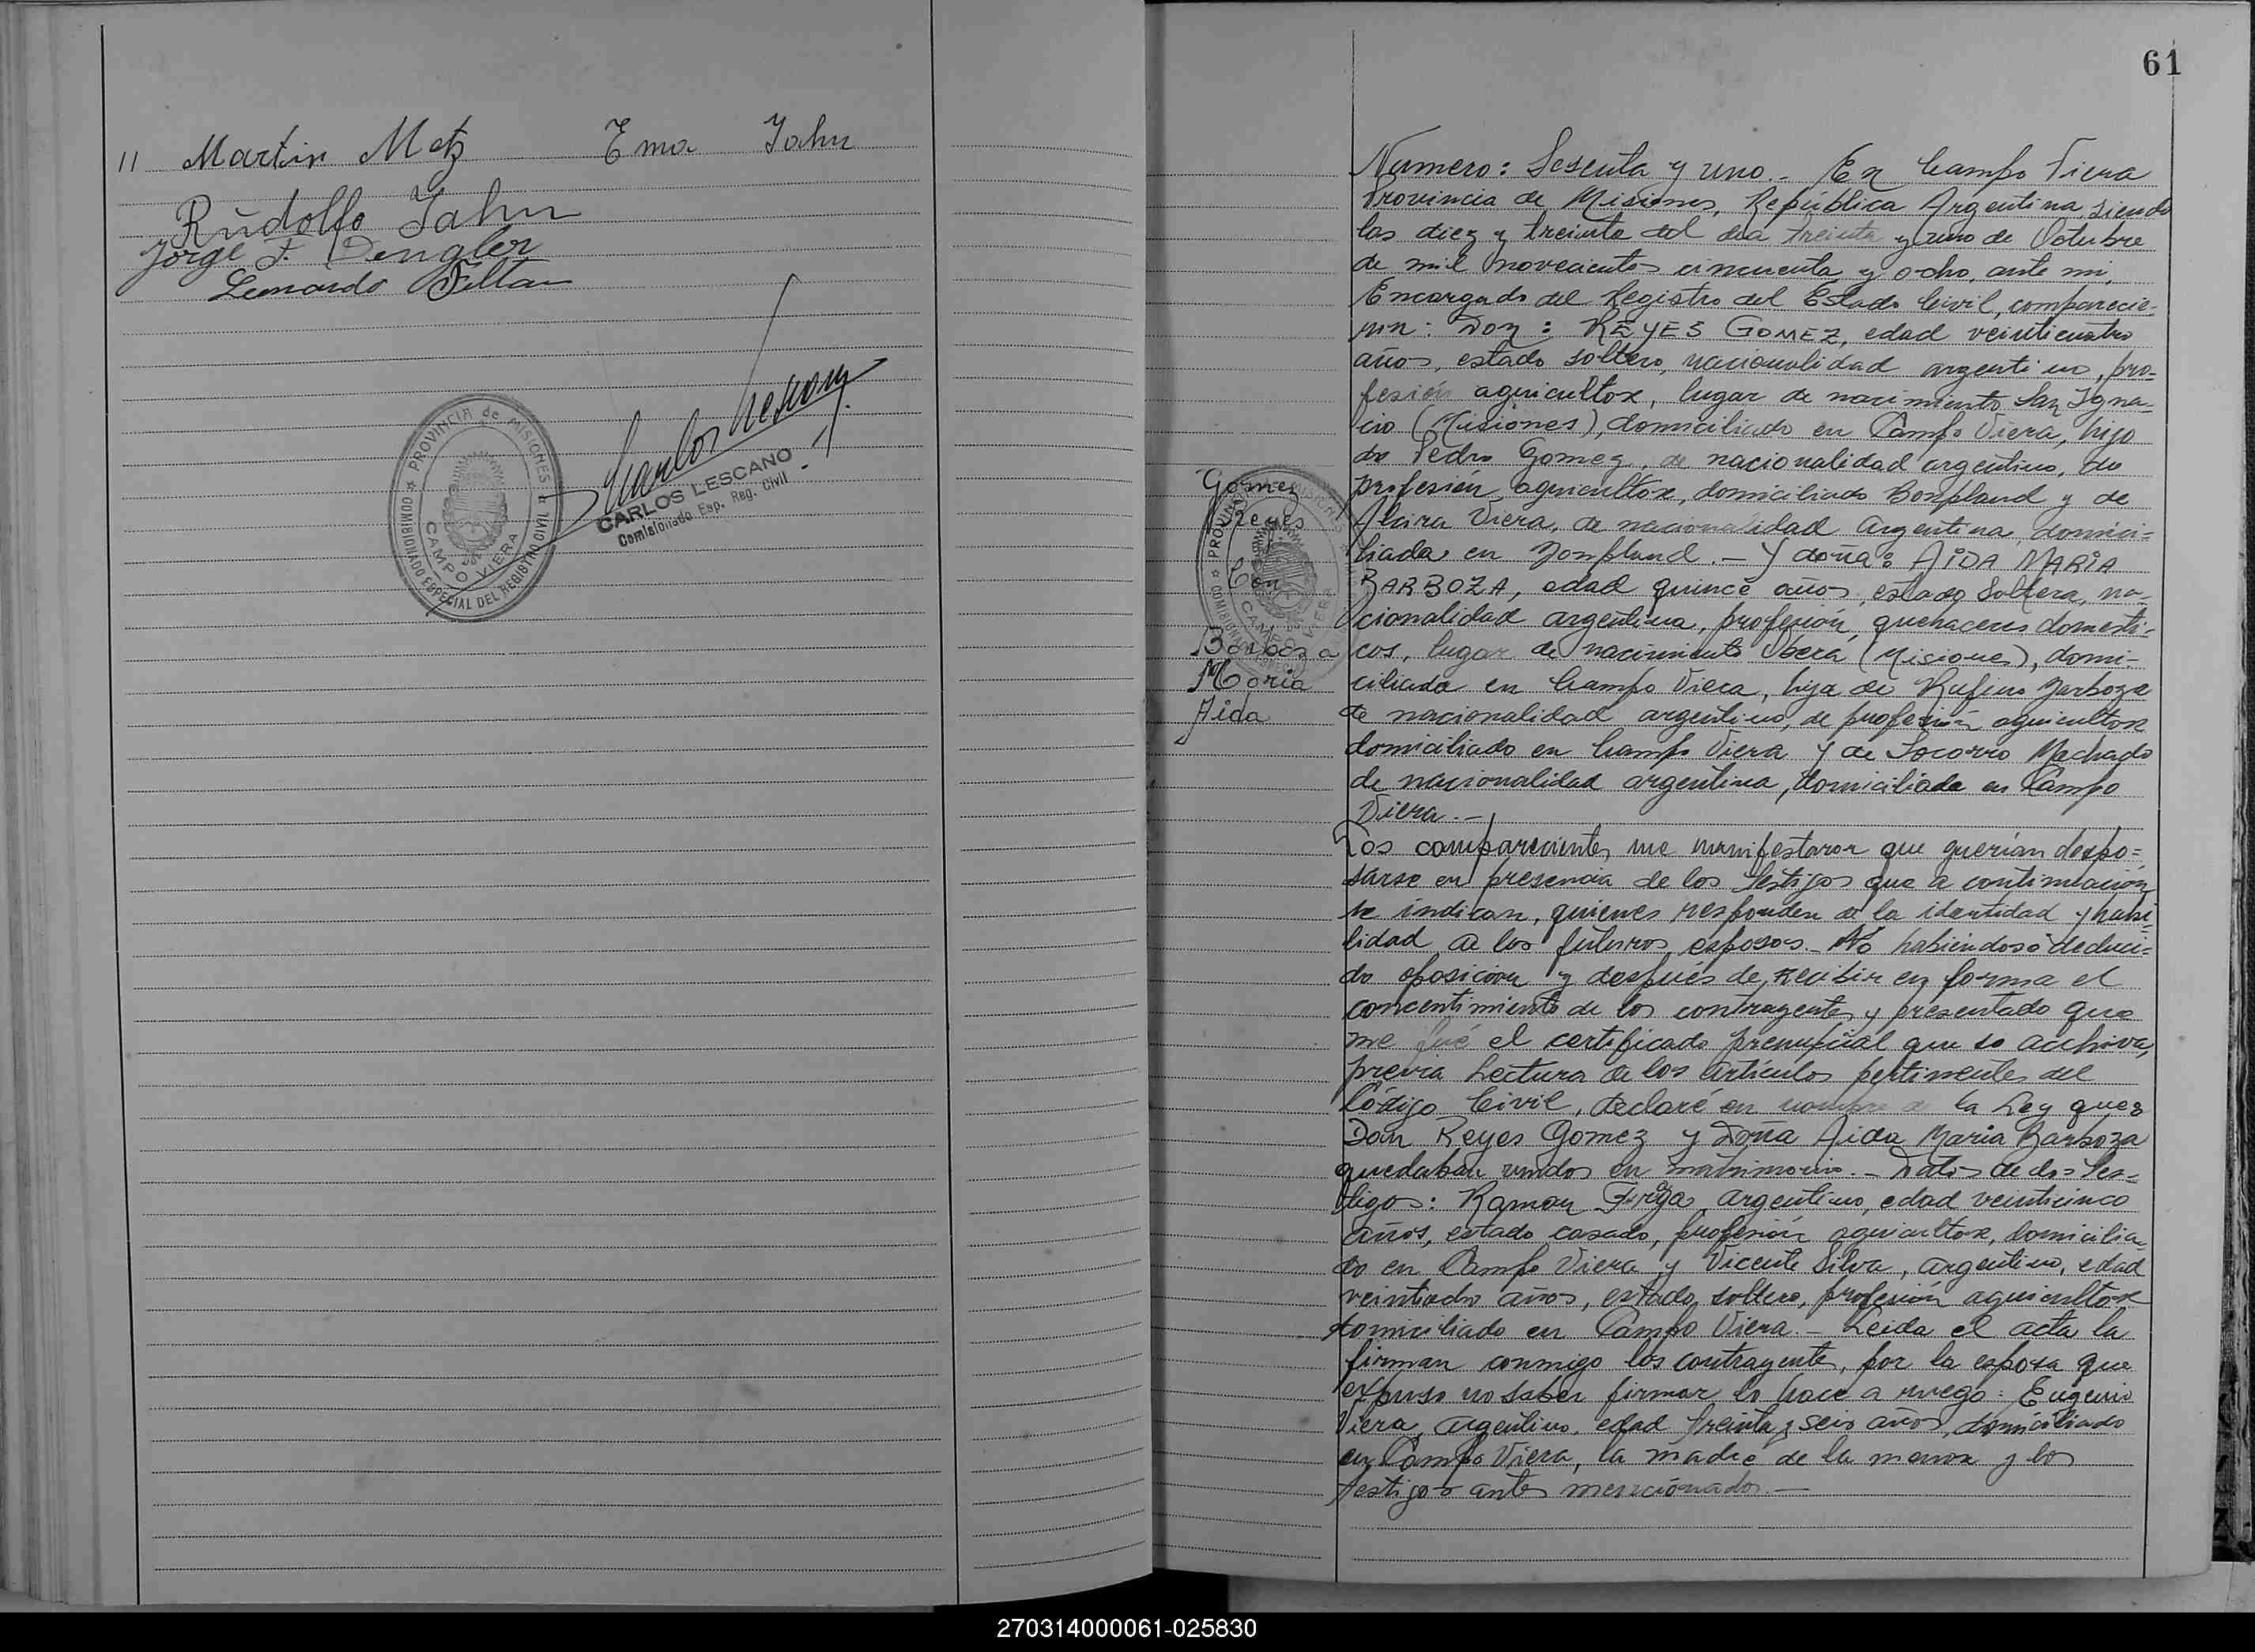 11 Martin Metz Ema Jahn
Rudolfo Jahn
Jorge F. Dengler
Leonardo
PROVINCIA de MISIONES
COMISIONADO ESPECIAL DEL REGISTRO CIVIL
CAMPO VIERA
Carlos Lescano
CARLOS LESCANO
Comisionado Esp. Reg. Civil
61
Gomez
Reyes
Con
Barboza
Maria
Aida
Numero: Sesenta y uno.- En Campo Viera
Provincia de Misiones, República Argentina, siendo
las diez y treinta del dia treinta y uno de Octubre
de mil novecientos cincuenta y ocho, ante mi,
Encargado del Registro del Estado Civil, comparecie-
ron: Don: REYES GOMEZ, edad veinticuatro
años, estado soltero, nacionalidad argentino, pro-
fesión agricultor, lugar de nacimiento San Igna-
cio (Misiones), domiciliado en Campo Viera, hijo
de Pedro Gomez, de nacionalidad argentino, de
profesión agricultor, domiciliado Bonpland y de
Viera, de nacionalidad argentina domici-
liada en Bonpland.- Y doña: AIDA MARIA
BARBOZA, edad quince años, estado Soltera, na-
cionalidad argentina, profesión quehaceres domesti-
cos, lugar de nacimiento Oberá (Misiones), domi-
ciliada en Campo Viera, hija de Rufino Barboza
de nacionalidad argentino, de profesión agricultor
domiciliado en Campo Viera y de Socorro Machado
de nacionalidad argentina, domiciliada en Campo
Viera.-
Los comparecientes me manifestaron que querían despo=
sarse en presencia de los testigos que a continuación
se indican, quienes responden de la identidad y habi-
lidad de los futuros esposos.- No habiendose deduci-
do oposición y después de recibir en forma el
concentimiento de los contrayentes y presentado que
me fué el certificado prenupcial que se archiva,
previa Lectura de los artículos pertinentes del
Código Civil, declaré en nombre de la Ley que:
Don Reyes Gomez y Doña Aida Maria Barboza
quedaban unidos en matrimonio.- Datos de los Tes-
tigos: Ramon argentino, edad veinticinco
años, estado casado, profesión agricultor, domicilia-
do en Campo Viera y Vicente Silva, argentino, edad
años, estado soltero, profesión agricultor
domiciliado en Campo Viera.- Leida el acta la
firman conmigo los contrayentes, por la esposa que
expuso no saber firmar lo hace a ruego: Eugenio
Viera, argentino, edad treinta y seis años, domiciliado
en Campo Viera, la madre de la menor y los
testigos antes mencionados.-
270314000061-025830